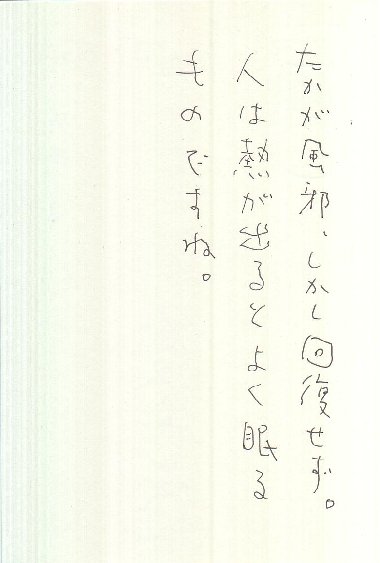 たかが風邪、しかし回復せず。
人は熱が出るとよく眠る
ものですね。